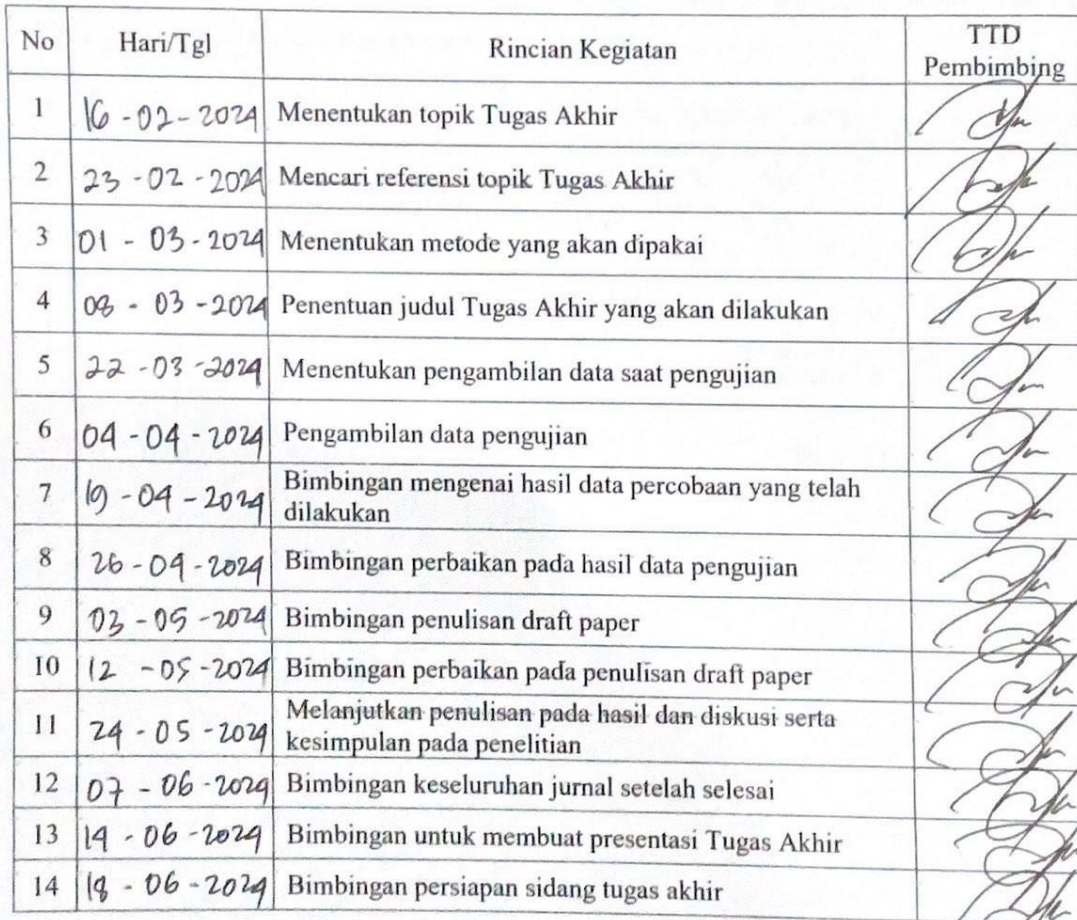 No Hari/Tgl Rincian Kegiatan TTD
Pembimbing
1 16 - 02 - 2024 Menentukan topik Tugas Akhir
2 23 - 02 - 2024 Mencari referensi topik Tugas Akhir
3 01 - 03 - 2024 Menentukan metode yang akan dipakai
4 08 - 03 - 2024 Penentuan judul Tugas Akhir yang akan dilakukan
5 22 - 03 - 2024 Menentukan pengambilan data saat pengujian
6 04 - 04 - 2024 Pengambilan data pengujian
7 19 - 04 - 2024 Bimbingan mengenai hasil data percobaan yang telah
dilakukan
8 26 - 04 - 2024 Bimbingan perbaikan pada hasil data pengujian
9 03 - 05 - 2024 Bimbingan penulisan draft paper
10 12 - 05 - 2024 Bimbingan perbaikan pada penulisan draft paper
11 24 - 05 - 2024 Melanjutkan penulisan pada hasil dan diskusi serta
kesimpulan pada penelitian
12 07 - 06 - 2024 Bimbingan keseluruhan jurnal setelah selesai
13 14 - 06 - 2024 Bimbingan untuk membuat presentasi Tugas Akhir
14 18 - 06 - 2024 Bimbingan persiapan sidang tugas akhir